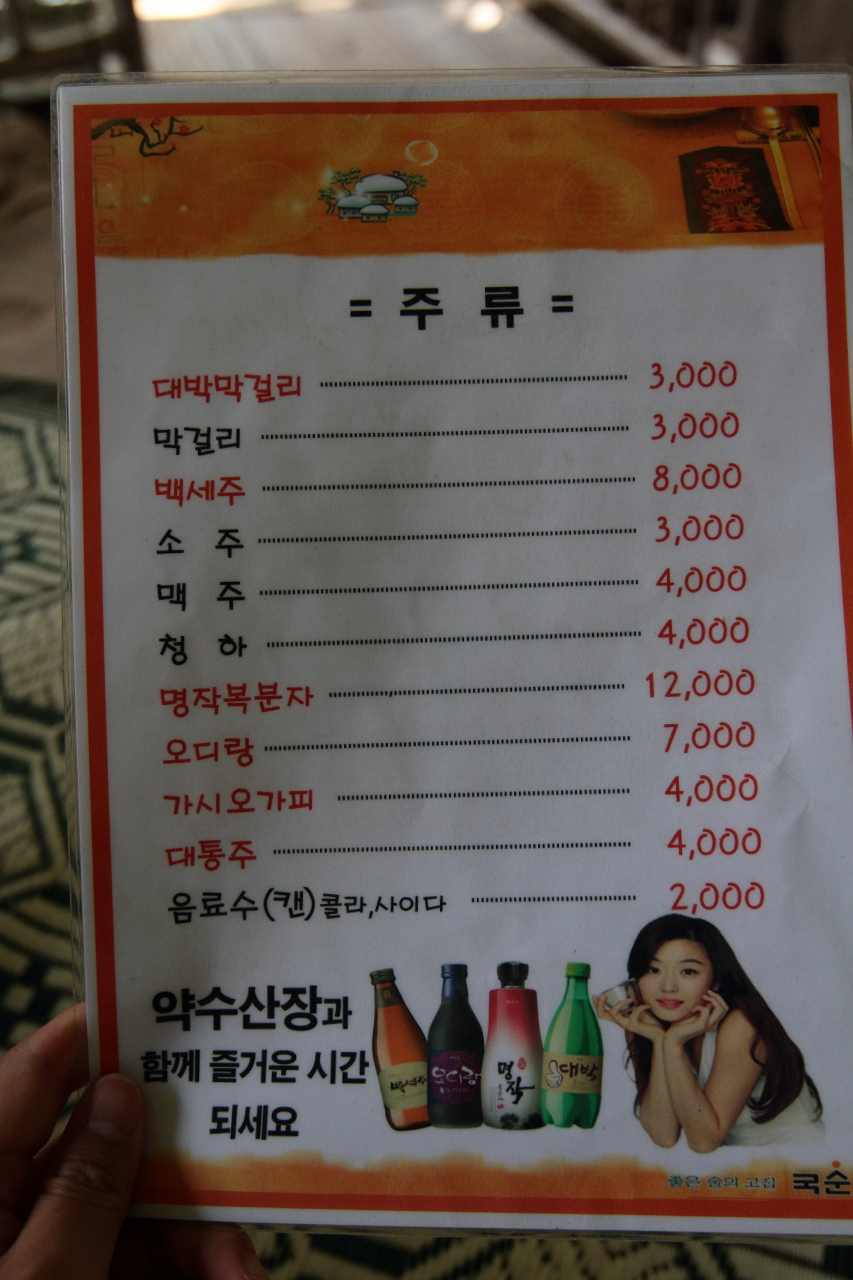 = 주 류 =
대박막걸리 3,000
막걸리 3,000
백세주 8,000
소 주 3,000
맥 주 4,000
청 하 4,000
명작복분자 12,000
오디랑 7,000
가시오가피 4,000
대통주 4,000
음료수(캔)콜라,사이다 2,000
약수산장과
함께 즐거운 시간
되세요
백세주
오디랑
명작
대박
좋은 술의 고집 국순